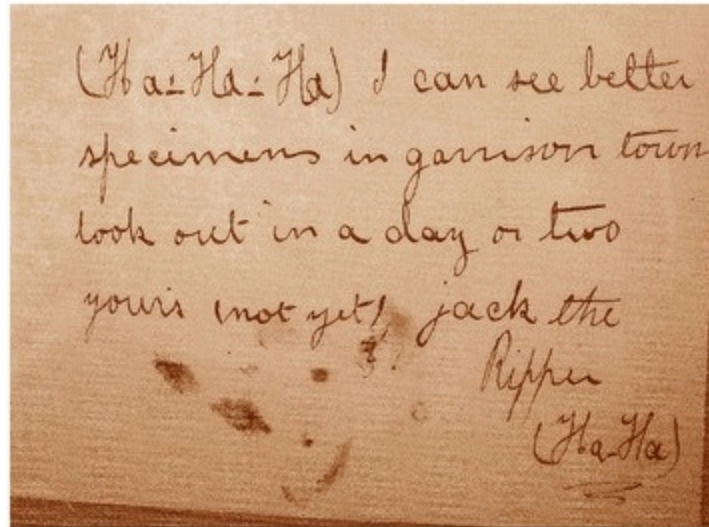 (Ha-Ha-Ha) I can see better
specimens in garrison town
look out in a day or two
yours (not yet) jack the
Ripper
(Ha-Ha)